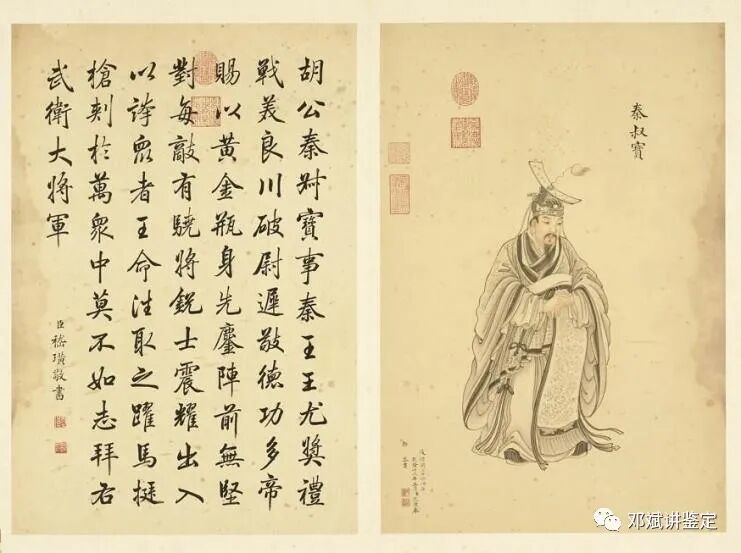 秦叔寶
胡公秦叔寶事秦王王尤奬禮
戰美良川破尉遲敬德功多帝
賜以黃金瓶身先鏖陣前無堅
對每敵有驍將銳士震耀出入
以誇眾者王命往取之躍馬挺
槍刺於萬眾中莫不如志拜右
武衛大將軍
臣嵇璜敬書
邓斌讲鉴定